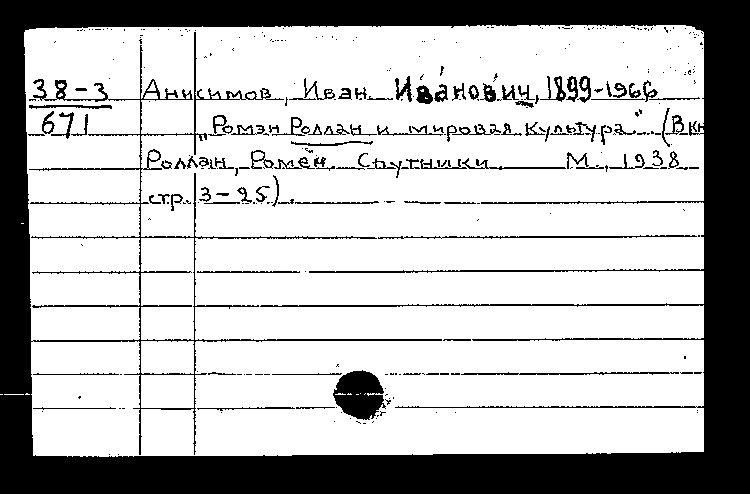 38-3 Анисимов, Иван Иванович, 1899-1966
671 „Ромэн Роллан и мировая культура." (В кн
Роллан, Ромен. Спутники. М., 1938
стр. 3-25).